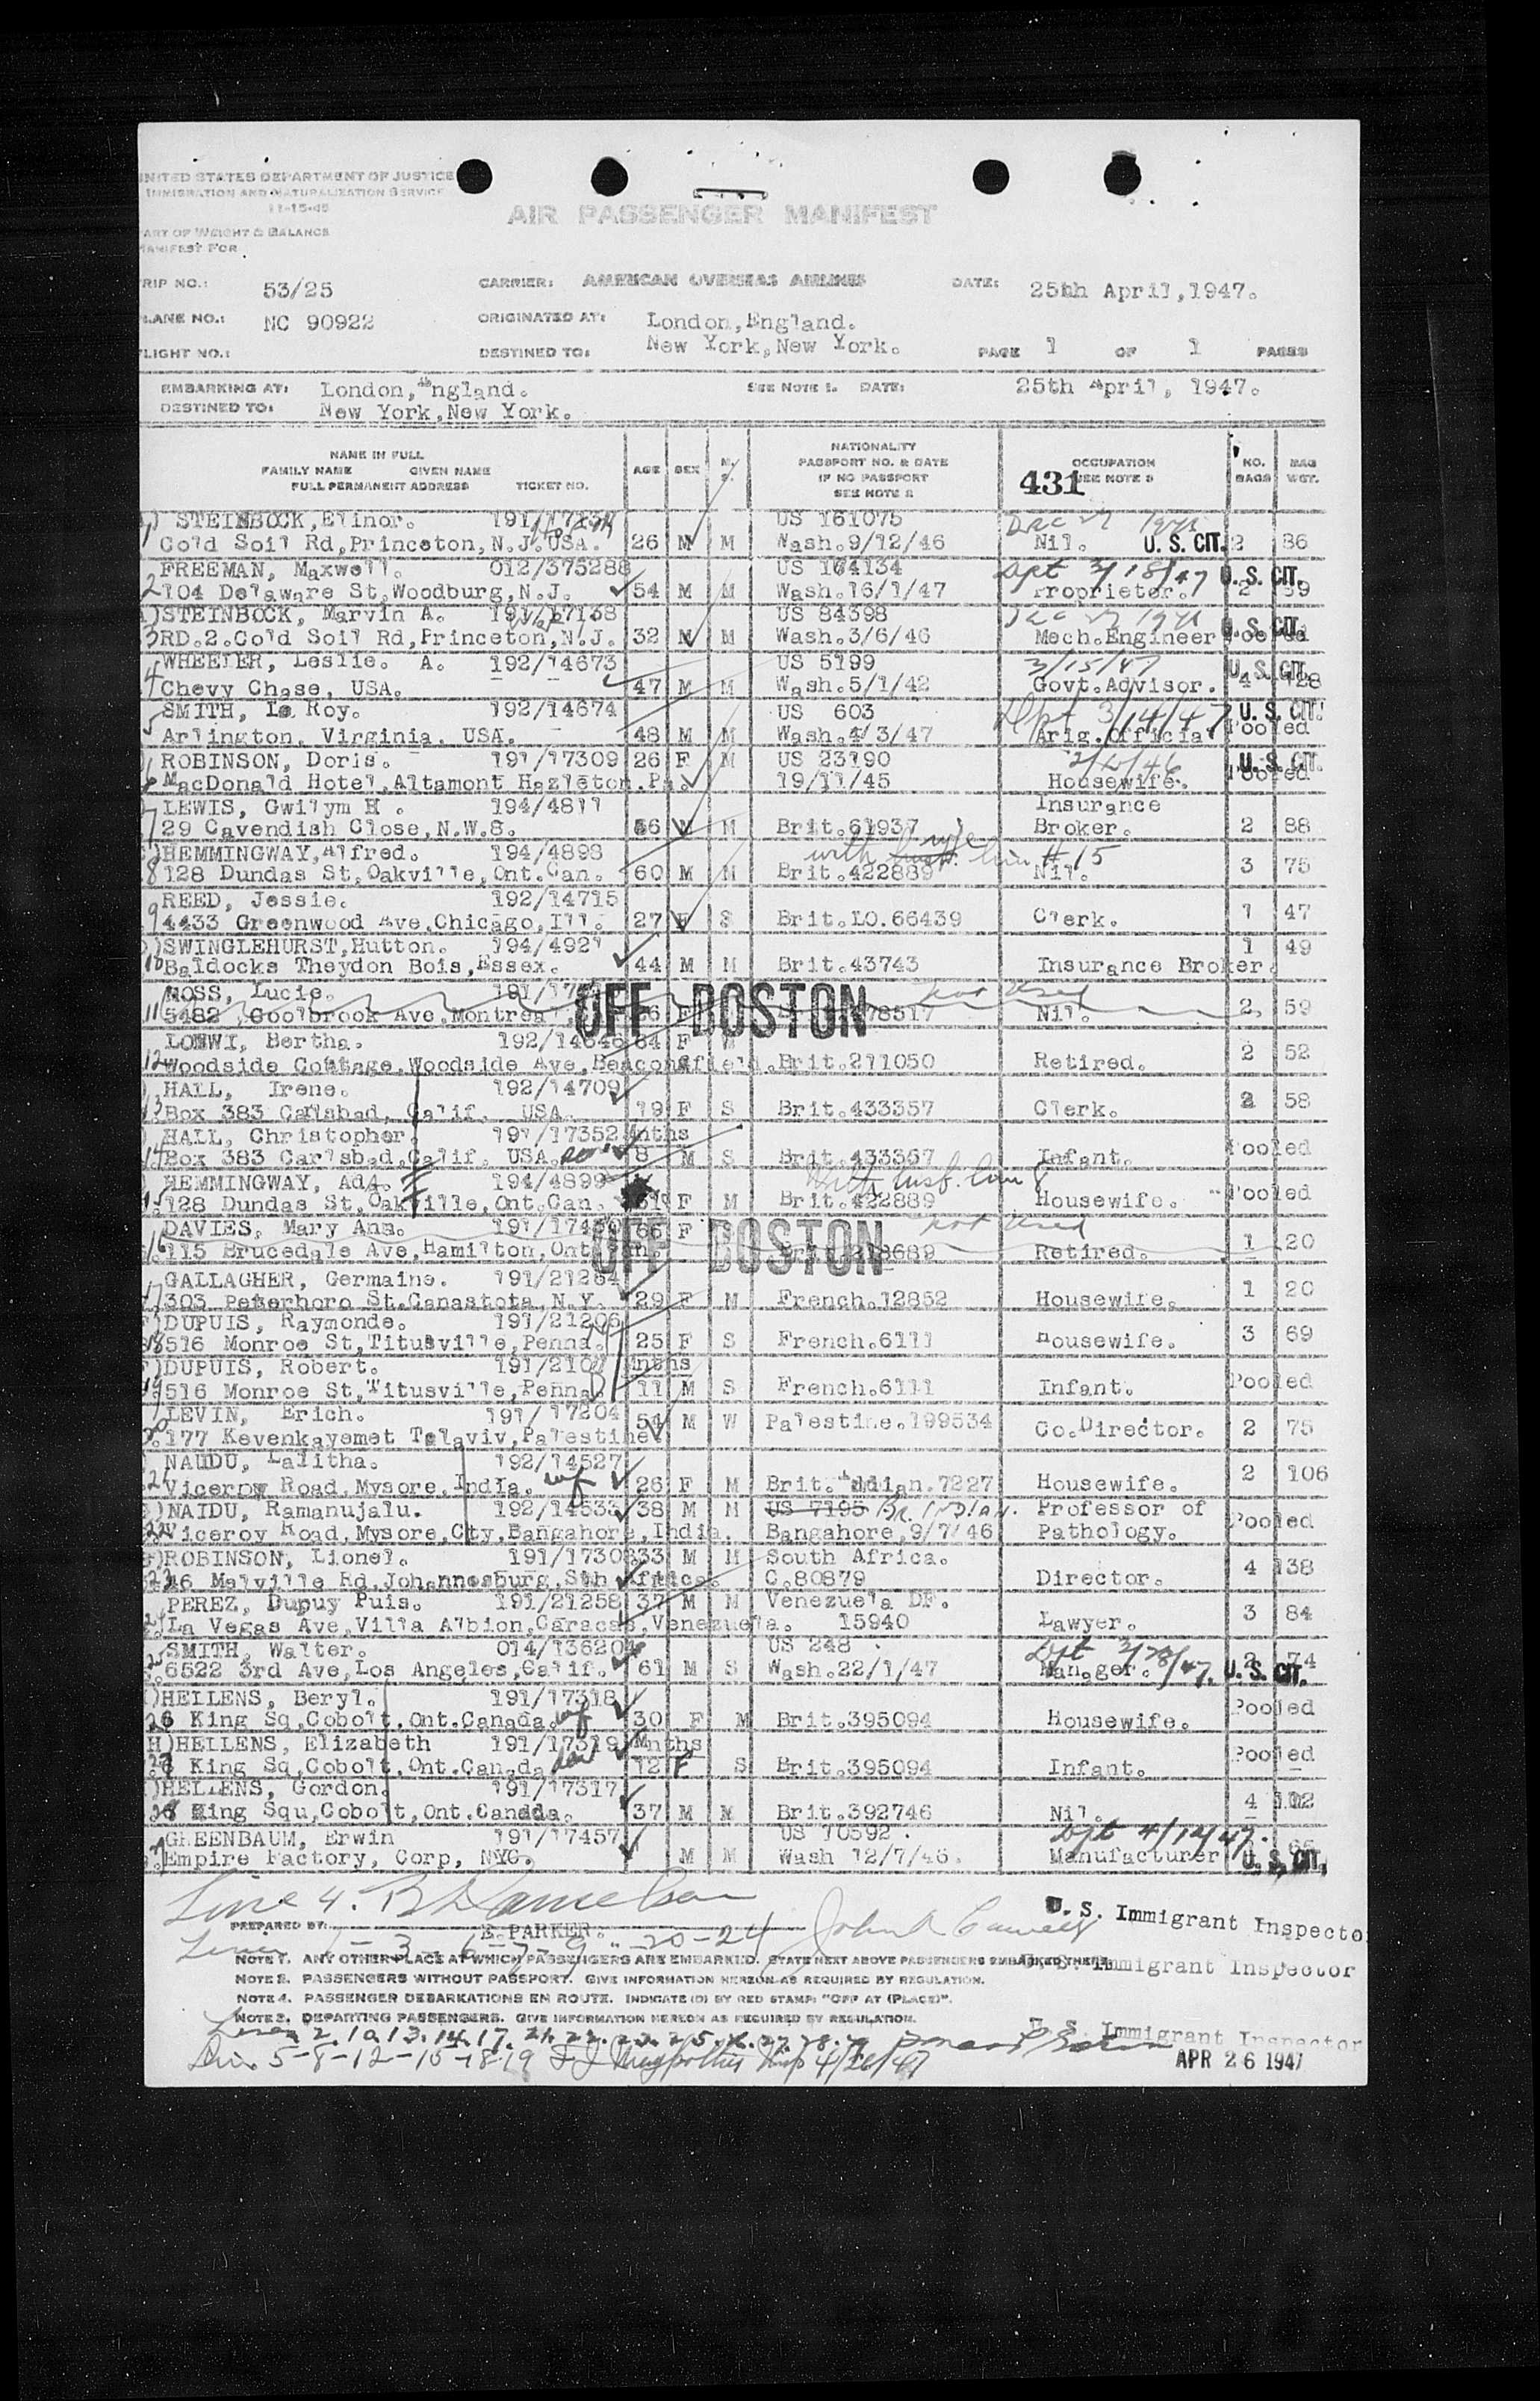 UNITED STATES DEPARTMENT OF JUSTICE
IMMIGRATION AND NATURALIZATION SERVICE
11-15-45
PART OF WEIGHT & BALANCE
MANIFEST FOR
AIR PASSENGER MANIFEST
TRIP NO.: 53/25 CARRIER: AMERICAN OVERSEAS AIRLINES DATE: 25th April,1947.
PLANE NO.: NC 90922 ORIGINATED AT: London,England.
FLIGHT NO.: DESTINED TO: New York,New York. PAGE 1 OF 1 PAGES
EMBARKING AT: London,England. SEE NOTE 1. DATE: 25th April, 1947.
DESTINED TO: New York,New York.
NAME IN FULL
FAMILY NAME GIVEN NAME
FULL PERMANENT ADDRESS TICKET NO. AGE SEX M. S. NATIONALITY PASSPORT NO. & DATE IF NO PASSPORT SEE NOTE 2 431 OCCUPATION SEE NOTE 3 NO. BAGS BAG WGT.
1 STEINBOCK,Elinor. US 161075 Dec
Cold Soil Rd,Princeton,N.J.USA. 26 M M Wash.9/12/46 Nil. U.S.CIT. 2 86
FREEMAN, Maxwell. 012/375288 US 164134 Dpt 3/18/47 U.S.CIT.
2 104 Delaware St,Woodburg,N.J. 54 M M Wash.16/1/47 Proprietor. 2 39
STEINBOCK, Marvin A. 191/17138 US 84398 U.S.CIT.
3 RD.2.Cold Soil Rd,Princeton,N.J. 32 M M Wash.3/6/46 Mech.Engineer Pooled
WHEELER, Leslie. A. 192/14673 US 5199 3/15/47 U.S.CIT.
4 Chevy Chase, USA. 47 M M Wash.5/1/42 Govt.Advisor. 4 128
SMITH, Le Roy. 192/14674 US 603 Dpt 3/14/47 U.S.CIT.
5 Arlington, Virginia. USA. 48 M M Wash.4/3/47 Arig.Official Pooled
ROBINSON, Doris. 191/17309 26 F M US 23190 U.S.CIT.
6 MacDonald Hotel,Altamont Hazleton.Pa. 19/11/45 Housewife. Pooled
LEWIS, Gwilym H . 194/4811 Insurance
7 29 Cavendish Close,N.W.8. M Brit.61937 Broker. 2 88
HEMMINGWAY,Alfred. 194/4898 with wife line # 15
8 128 Dundas St,Oakville,Ont.Can. 60 M M Brit.422889 Nil. 3 75
REED, Jessie. 192/14715
9 4433 Greenwood Ave,Chicago,Ill. 27 F S Brit.LO.66439 Clerk. 1 47
SWINGLEHURST,Hutton. 194/4921 1 49
10 Baldocks Theydon Bois,Essex. 44 M M Brit.43743 Insurance Broker.
MOSS, Lucie. OFF BOSTON not used
11 5482 Coolbrook Ave,Montreal F Nil. 2 59
LOEWI, Bertha. 192/14646 64 F M
12 Woodside Cottage,Woodside Ave,Beaconsfield.Brit.211050 Retired. 2 52
HALL, Irene. 192/14709
13 Box 383 Carlsbad, Calif. USA. 19 F S Brit.433357 Clerk. 2 58
HALL, Christopher. 191/17352 Mnths
14 Box 383 Carlsbad,Calif. USA. son 8 M S Brit.433357 Infant. Pooled
HEMMINGWAY, Ada. 194/4899 With husb. line 8
15 128 Dundas St,Oakville,Ont.Can. F M Brit.422889 Housewife. Pooled
DAVIES, Mary Ann. 66 F OFF BOSTON not used
16 115 Brucedale Ave,Hamilton,Ont.Can. Retired. 1 20
GALLAGHER, Germaine. 191/21264
17 303 Peterboro St.Canastota,N.Y. 29 F M French.12852 Housewife. 1 20
DUPUIS, Raymonde. 191/21206
18 516 Monroe St,Titusville,Penna. 25 F S French.6111 Housewife. 3 69
DUPUIS, Robert. Mnths
19 516 Monroe St,Titusville,Penna. 11 M S French.6111 Infant. Pooled
LEVIN, Erich. 191/17204
20 177 Kevenkayemet Telaviv,Palestine. 54 M W Palestine.199534 Co.Director. 2 75
NAUDU, Lalitha. 192/14527
21 Viceroy Road,Mysore,India. wf 26 F M Brit. Indian.7227 Housewife. 2 106
NAIDU, Ramanujalu. 192/14533 38 M M US 7195 Br. INDIAN. Professor of
22 Viceroy Road,Mysore,Cty,Bangahore,India. Bangahore,9/7/46 Pathology. Pooled
ROBINSON, Lionel. 191/17308 33 M M South Africa.
23 Melville Rd,Johannesburg,Sth Africa. C.80879 Director. 4 138
PEREZ, Dupuy Puis. 191/21258 37 M M Venezuela DF.
24 La Vegas Ave,Villa Albion,Caracas,Venezuela. 15940 Lawyer. 3 84
SMITH, Walter. 014/136204 US 248 Dpt 3/28/47.
25 6522 3rd Ave,Los Angeles,Calif. 61 M S Wash.22/1/47 Manager. U.S.CIT. 2 74
HELLENS, Beryl. 191/17318
26 King Sq,Cobolt,Ont.Canada. wf 30 F M Brit.395094 Housewife. Pooled
HELLENS, Elizabeth 191/17319 Mnths
27 King Sq,Cobolt,Ont.Canada 12 F S Brit.395094 Infant. Pooled
HELLENS, Gordon. 191/17317
28 King Squ,Cobolt,Ont.Canada. 37 M M Brit.392746 Nil. 4 102
GREENBAUM, Erwin 191/17457 US 10592 .
Empire Factory, Corp, NYC. M M Wash 12/7/46. Manufacturer U.S.CIT.
Line 4.
U.S. Immigrant Inspector
PREPARED BY: E.PARKER.
Lines 1-3-6-7-9-11-20-24
NOTE 1. ANY OTHER PLACE AT WHICH PASSENGERS ARE EMBARKED. STATE NEXT ABOVE PASSENGERS EMBARKED THERE.
U.S. Immigrant Inspector
NOTE 2. PASSENGERS WITHOUT PASSPORT. GIVE INFORMATION HEREON AS REQUIRED BY REGULATION.
NOTE 4. PASSENGER DEBARKATIONS EN ROUTE. INDICATE (D) BY RED STAMP "OFF AT (PLACE)".
NOTE 3. DEPARTING PASSENGERS. GIVE INFORMATION HEREON AS REQUIRED BY REGULATION.
U.S. Immigrant Inspector
Lines 2.10.13.14.17.21.22.23.25.26.27.28.29
Lines 5-8-12-15-18-19 4/26/47
APR 26 1947